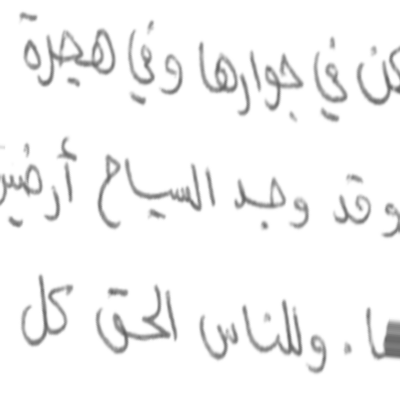 في جوارها وفي هجرة
وقد وجد السياح
. وللناس الحق كل